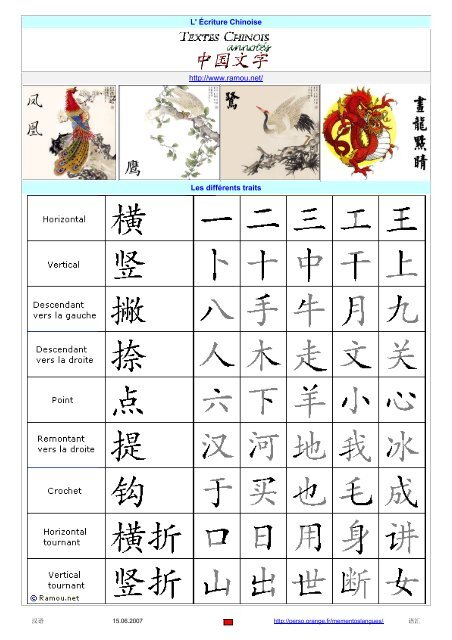 L' Écriture Chinoise
TEXTES CHINOIS
annotés
中国文字
http://www.ramou.net/
凤凰
鹰
鷺
畫龍點睛
Les différents traits
Horizontal 横 一 二 三 工 王
Vertical 竖 卜 十 中 干 上
Descendant
vers la gauche 撇 八 手 牛 月 九
Descendant
vers la droite 捺 人 木 走 文 关
Point 点 六 下 羊 小 心
Remontant
vers la droite 提 汉 河 地 我 冰
Crochet 钩 于 买 也 毛 成
Horizontal
tournant 横折 口 日 用 身 讲
Vertical
tournant 竖折 山 出 世 断 女
© Ramou.net
汉语 15.06.2007 http://perso.orange.fr/mementoslangues/ 语汇